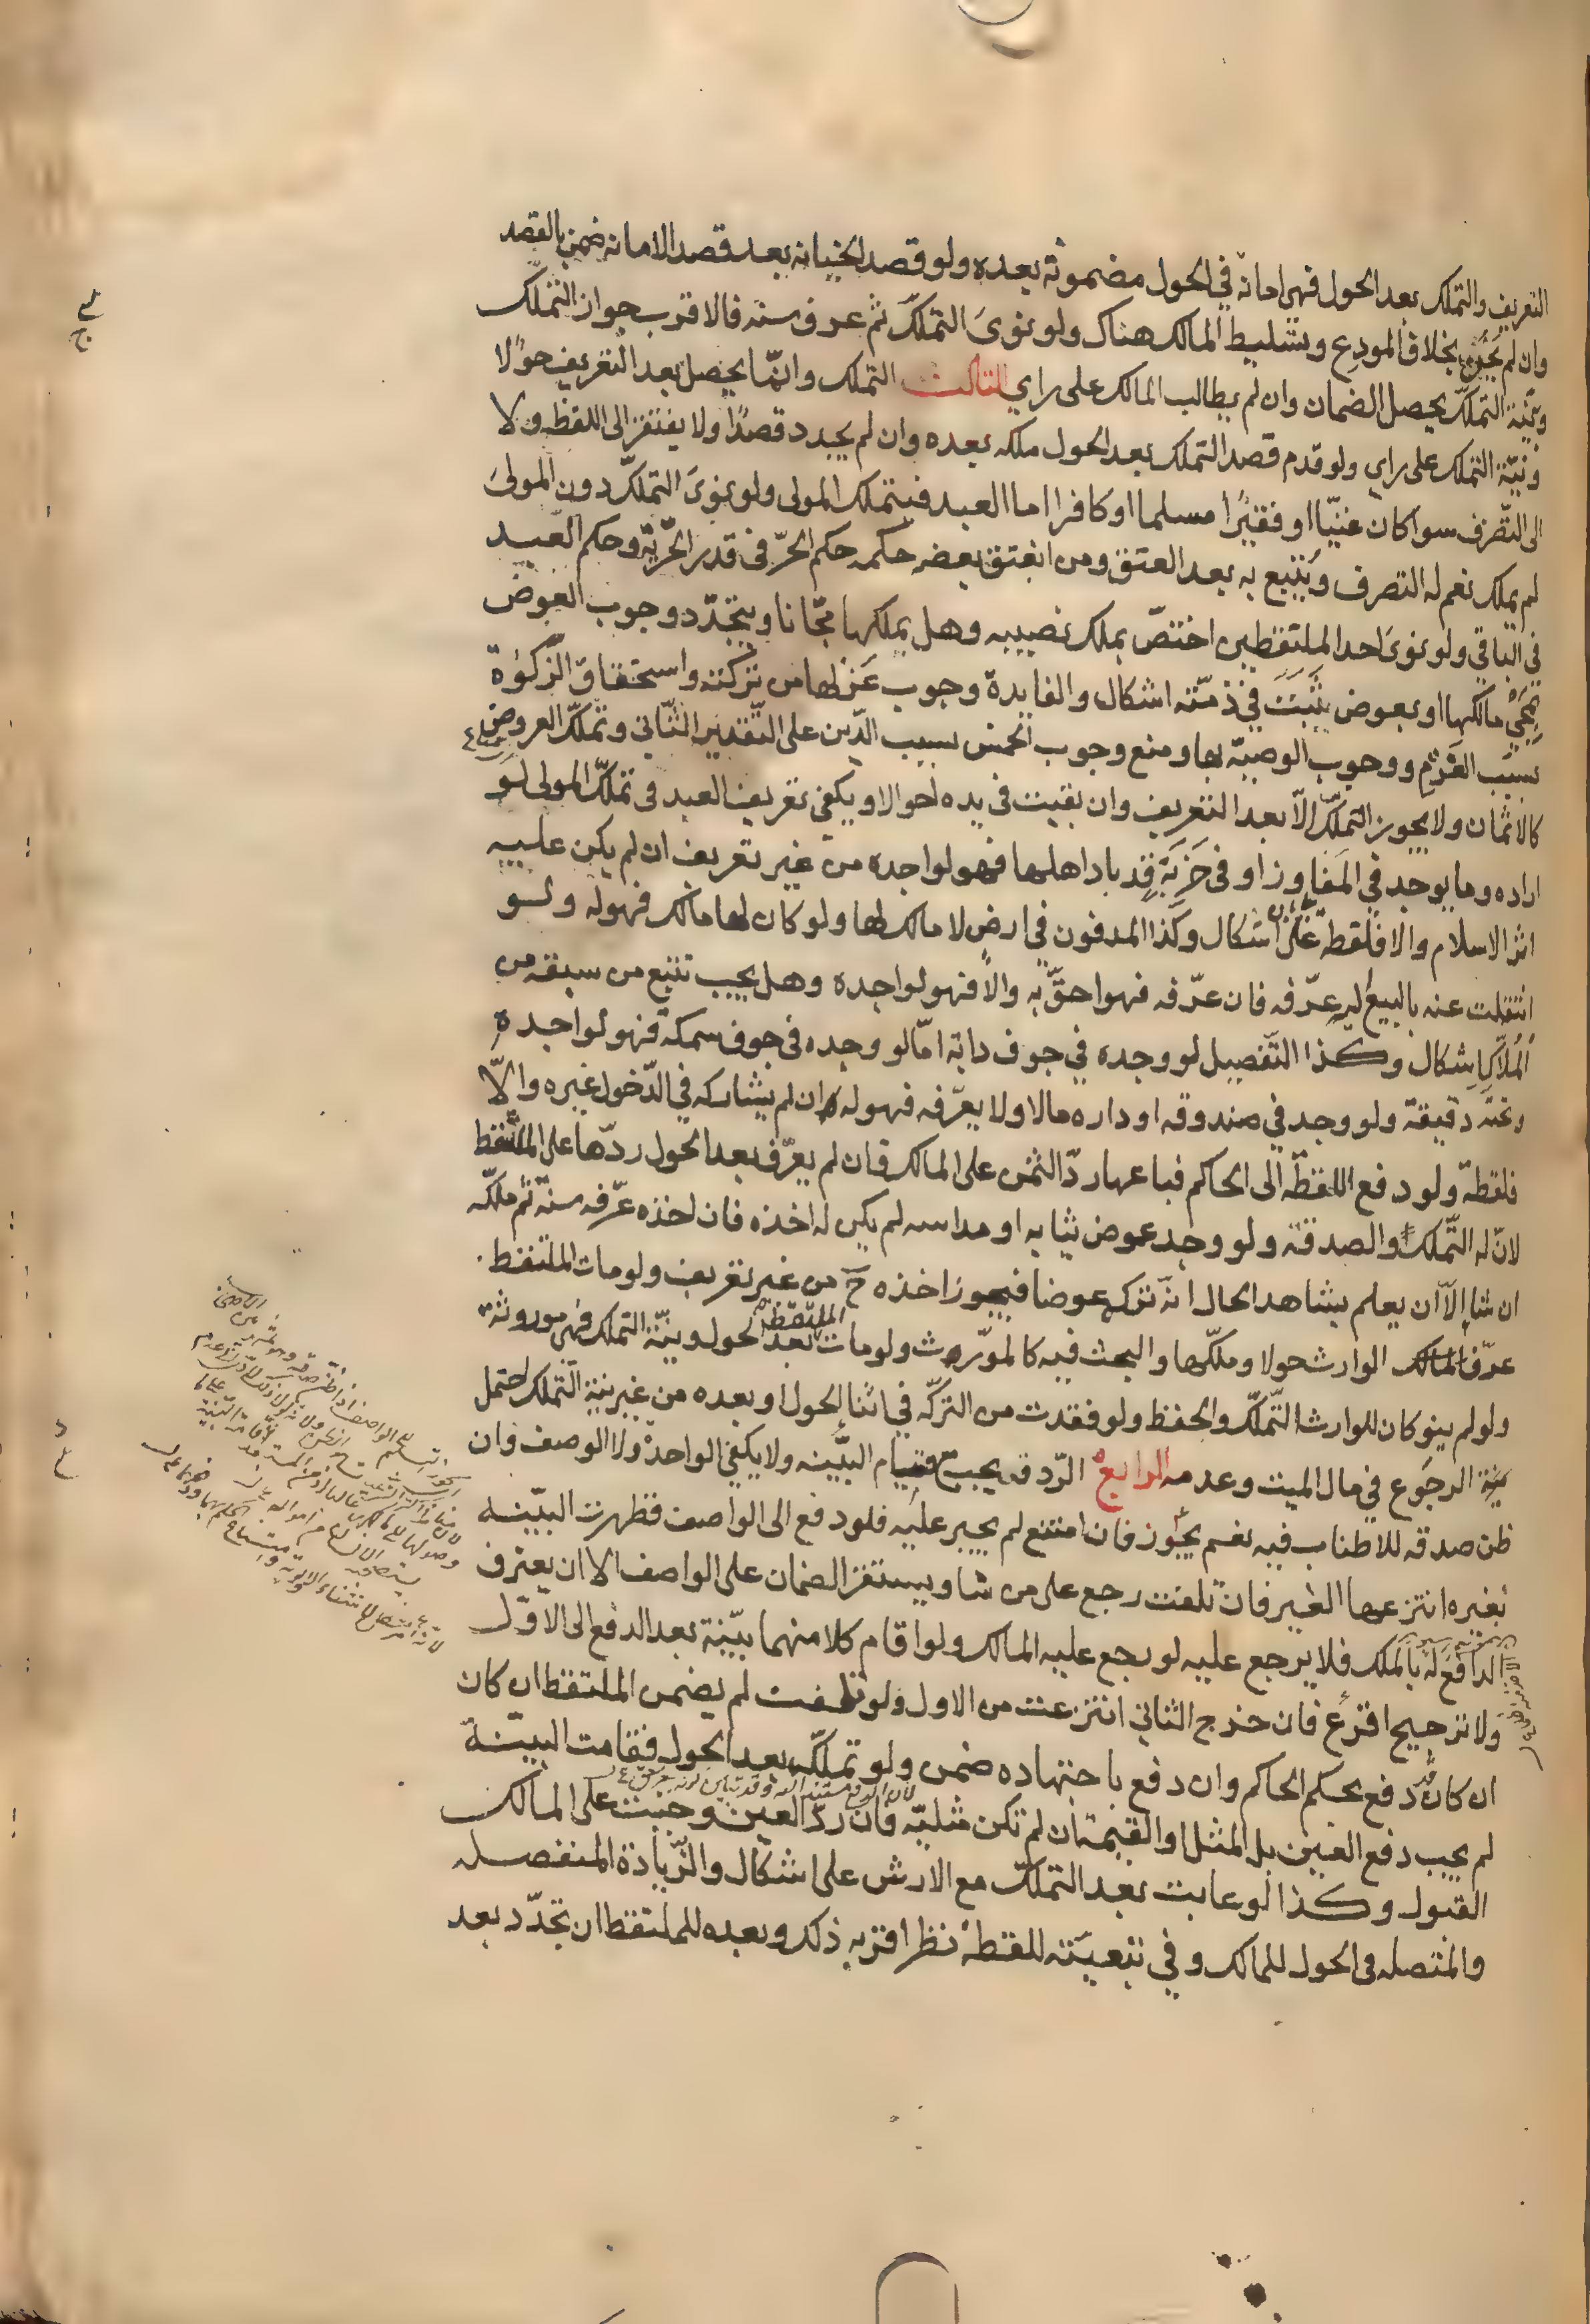 التعريف والتملك بعد الحول فهى امانة في الحول مضمونة بعده ولو قصد الخيانه بعد قصد الامانه ضمن بالقصد
وان لم يخن بخلاف المودع وبتسليط المالك هناك ولو نوى التملك ثم عرف سنه فالاقرب جواز التملك
وبنية التملك يحصل الضمان وان لم يطالب المالك على راى الثالث التملك وانما يحصل بعد التعريف حولا
ونية التملك على راى ولو قدم قصد التملك بعد الحول ملكه بعده وان لم يجدد قصدا ولا يفتقر الى اللفظ ولا
الى التصرف سوا كان غنيا او فقيرا مسلما او كافرا اما العبد فيتملك المولى ولو نوى التملك دون المولى
لم يملك نعم له التصرف ويتبع به بعد العتق ومن انعتق بعضه حكمه حكم الحر فى قدر الحرية وحكم العبد
في الباقي ولو نوى احد الملتقطين اختص بملك نصيبه وهل يملكها مجانا ويتجدد وجوب العوض
بمجئ مالكها او بعوض يثبت في ذمته اشكال والفايدة وجوب عزلها من تركته واستحقاق الزكوة
بسبب الغرم ووجوب الوصية بها ومنع وجوب الخمس بسبب الدين على التقدير الثاني وتملك العروض
كالاثمان ولا يجوز التملك الا بعد التعريف وان بقيت فى يده احوالا ويكفى تعريف العبد فى تملك المولى لو
اراده وما يوجد في المفاوز او فى خربة قد باد اهلها فهو لواجده من غير تعريف ان لم يكن عليه
اثر الاسلام والا فلقطة على اشكال وكذا المدفون في ارض لا مالك لها ولو كان لها مالك فهو له ولو
انتقلت عنه بالبيع اليه عرفه فان عرفه فهو احق به والا فهو لواجده وهل يجب تتبع من سبقه من
الملاك اشكال وكذا التفصيل لو وجده في جوف دابة اما لو وجده فى جوف سمكة فهو لواجده
وتحته دقيقة ولو وجد في صندوقه او داره مالا ولا يعرفه فهو له ان لم يشاركه في الدخول غيره والا
فلقطة ولو دفع اللقطة الى الحاكم فباعها رد الثمن على المالك فان لم يعرف بعد الحول ردها على الملتقط
لان له التملك والصدقة ولو وجد عوض ثيابه او مداسه لم يكن له اخذه فان اخذه عرفه سنة ثم ملكه
ان شا الا ان يعلم بشاهد الحال انه تركه عوضا فيجوز اخذه ح من غير تعريف ولو مات الملتقط
عرف المالك الوارث حولا وملكها والبحث فيه كالمورث ولو مات الملتقط بعد الحول ونية التملك فهى موروثة
ولو لم ينو كان للوارث التملك والحفظ ولو فقدت من التركة في اثنا الحول او بعده من غير نية التملك احتمل
الرجوع في مال الميت وعدمه الرابع الرد يجب مع قيام البينه ولا يكفى الواحد ولا الوصف وان
ظن صدقه للاطناب فيه نعم يجوز فان امتنع لم يجبر عليه فلو دفع الى الواصف فظهرت البينه
لغيره انتزعها الغير فان تلفت رجع على من شا ويستقر الضمان على الواصف الا ان يعترف
الدافع له بالملك فلا يرجع عليه لو رجع عليه المالك ولو اقام كلا منهما بينة بعد الدفع الى الاول
ولا ترجيح اقرع فان خرج الثاني انتزعت من الاول ولو تلفت لم يضمن الملتقط ان كان
ان كان قد دفع بحكم الحاكم وان دفع باجتهاده ضمن ولو تملك بعد الحول فقامت البينة
لم يجب دفع العين بل المثل او القيمة ان لم تكن مثلية فان رد العين وجبت على المالك
القبول وكذا لو عابت بعد التملك مع الارش على اشكال والزيادة المنفصله
والمتصله فى الحول للمالك وفي تبعيته للقطة نظر اقربه ذلك وبعده للملتقط ان تجدد بعد